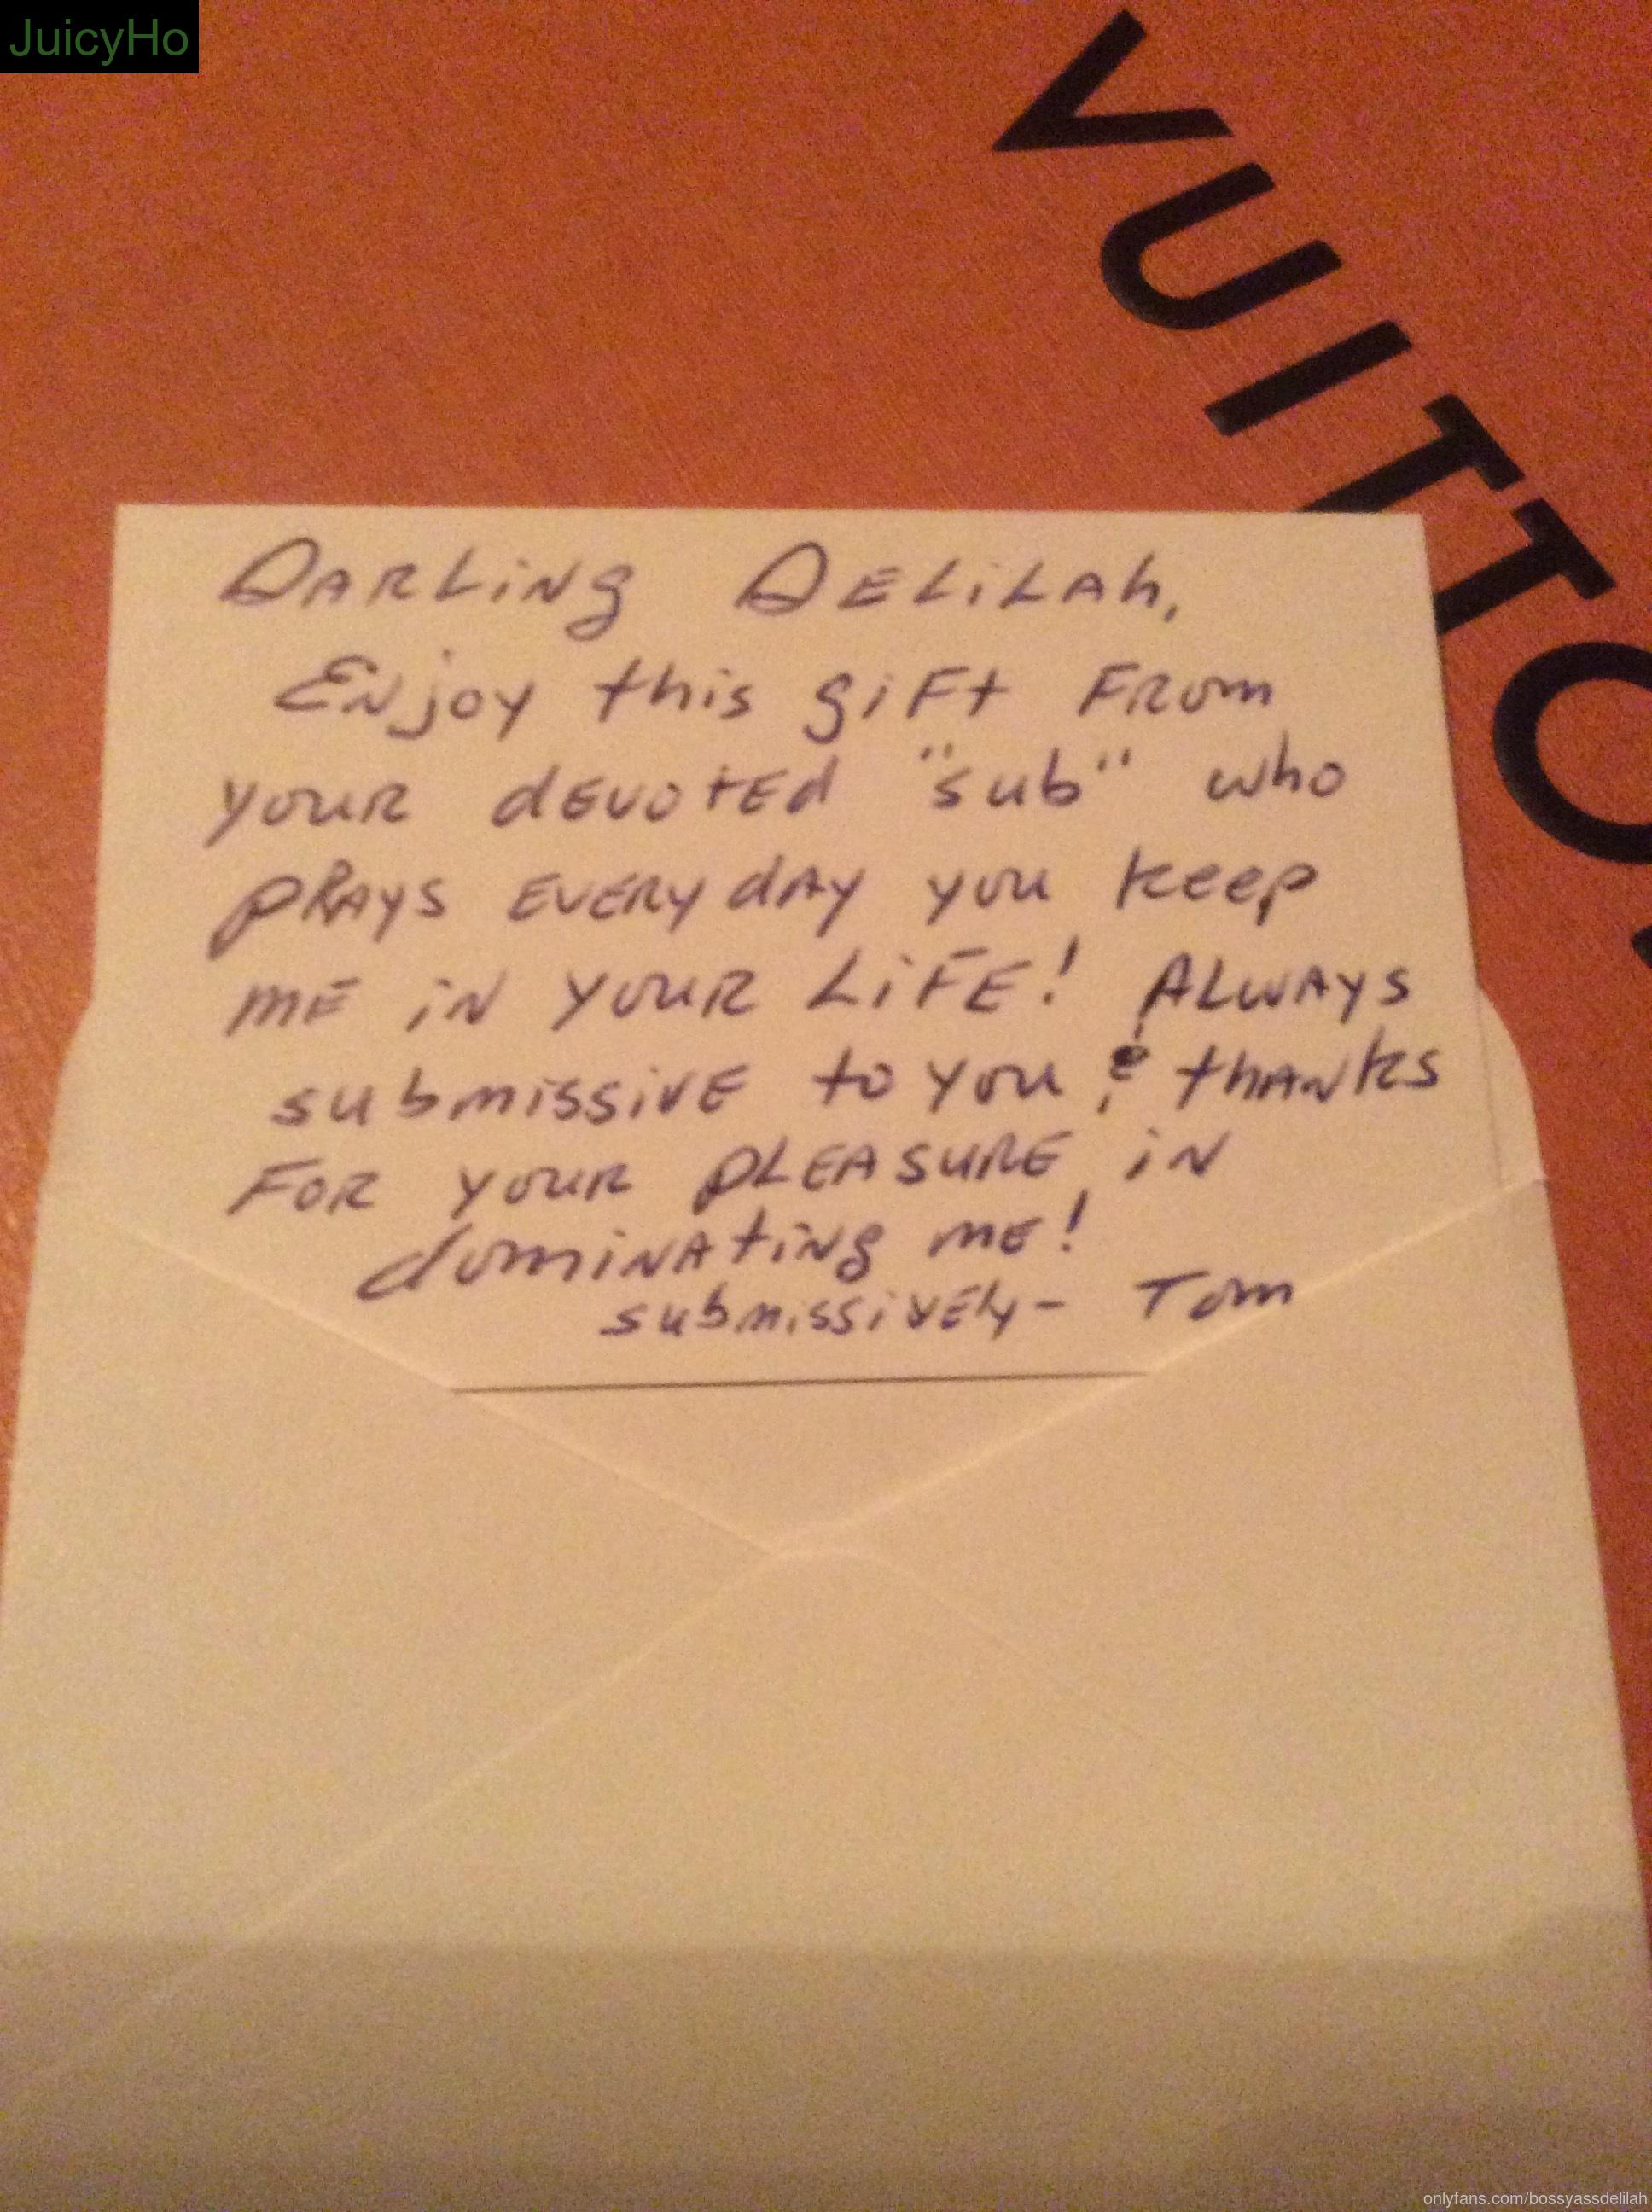 JuicyHo
VUITTO
Darling Delilah,
Enjoy this gift from
your devoted "sub" who
prays everyday you keep
me in your life! Always
submissive to you & thanks
for your pleasure in
dominating me!
submissively - Tom
onlyfans.com/bossyassdelilah